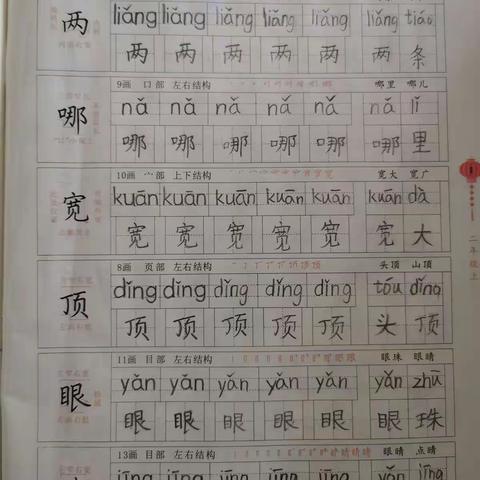 liǎng liǎng liǎng liǎng liǎng liǎng tiáo
两 两 两 两 两 两 两 条
9画 口部 左右结构 哪里 哪儿
nǎ nǎ nǎ nǎ nǎ nǎ lǐ
哪 哪 哪 哪 哪 哪 哪 里
10画 宀部 上下结构 宽大 宽广
kuān kuān kuān kuān kuān kuān dà
宽 宽 宽 宽 宽 宽 宽 大
8画 页部 左右结构 头顶 山顶
dǐng dǐng dǐng dǐng dǐng tóu dǐng
顶 顶 顶 顶 顶 顶 头 顶
11画 目部 左右结构 眼珠 眼睛
yǎn yǎn yǎn yǎn yǎn yǎn zhū
眼 眼 眼 眼 眼 眼 眼 珠
13画 目部 左右结构 眼睛 点睛
jīng jīng jīng jīng jīng yǎn jīng
二年级上